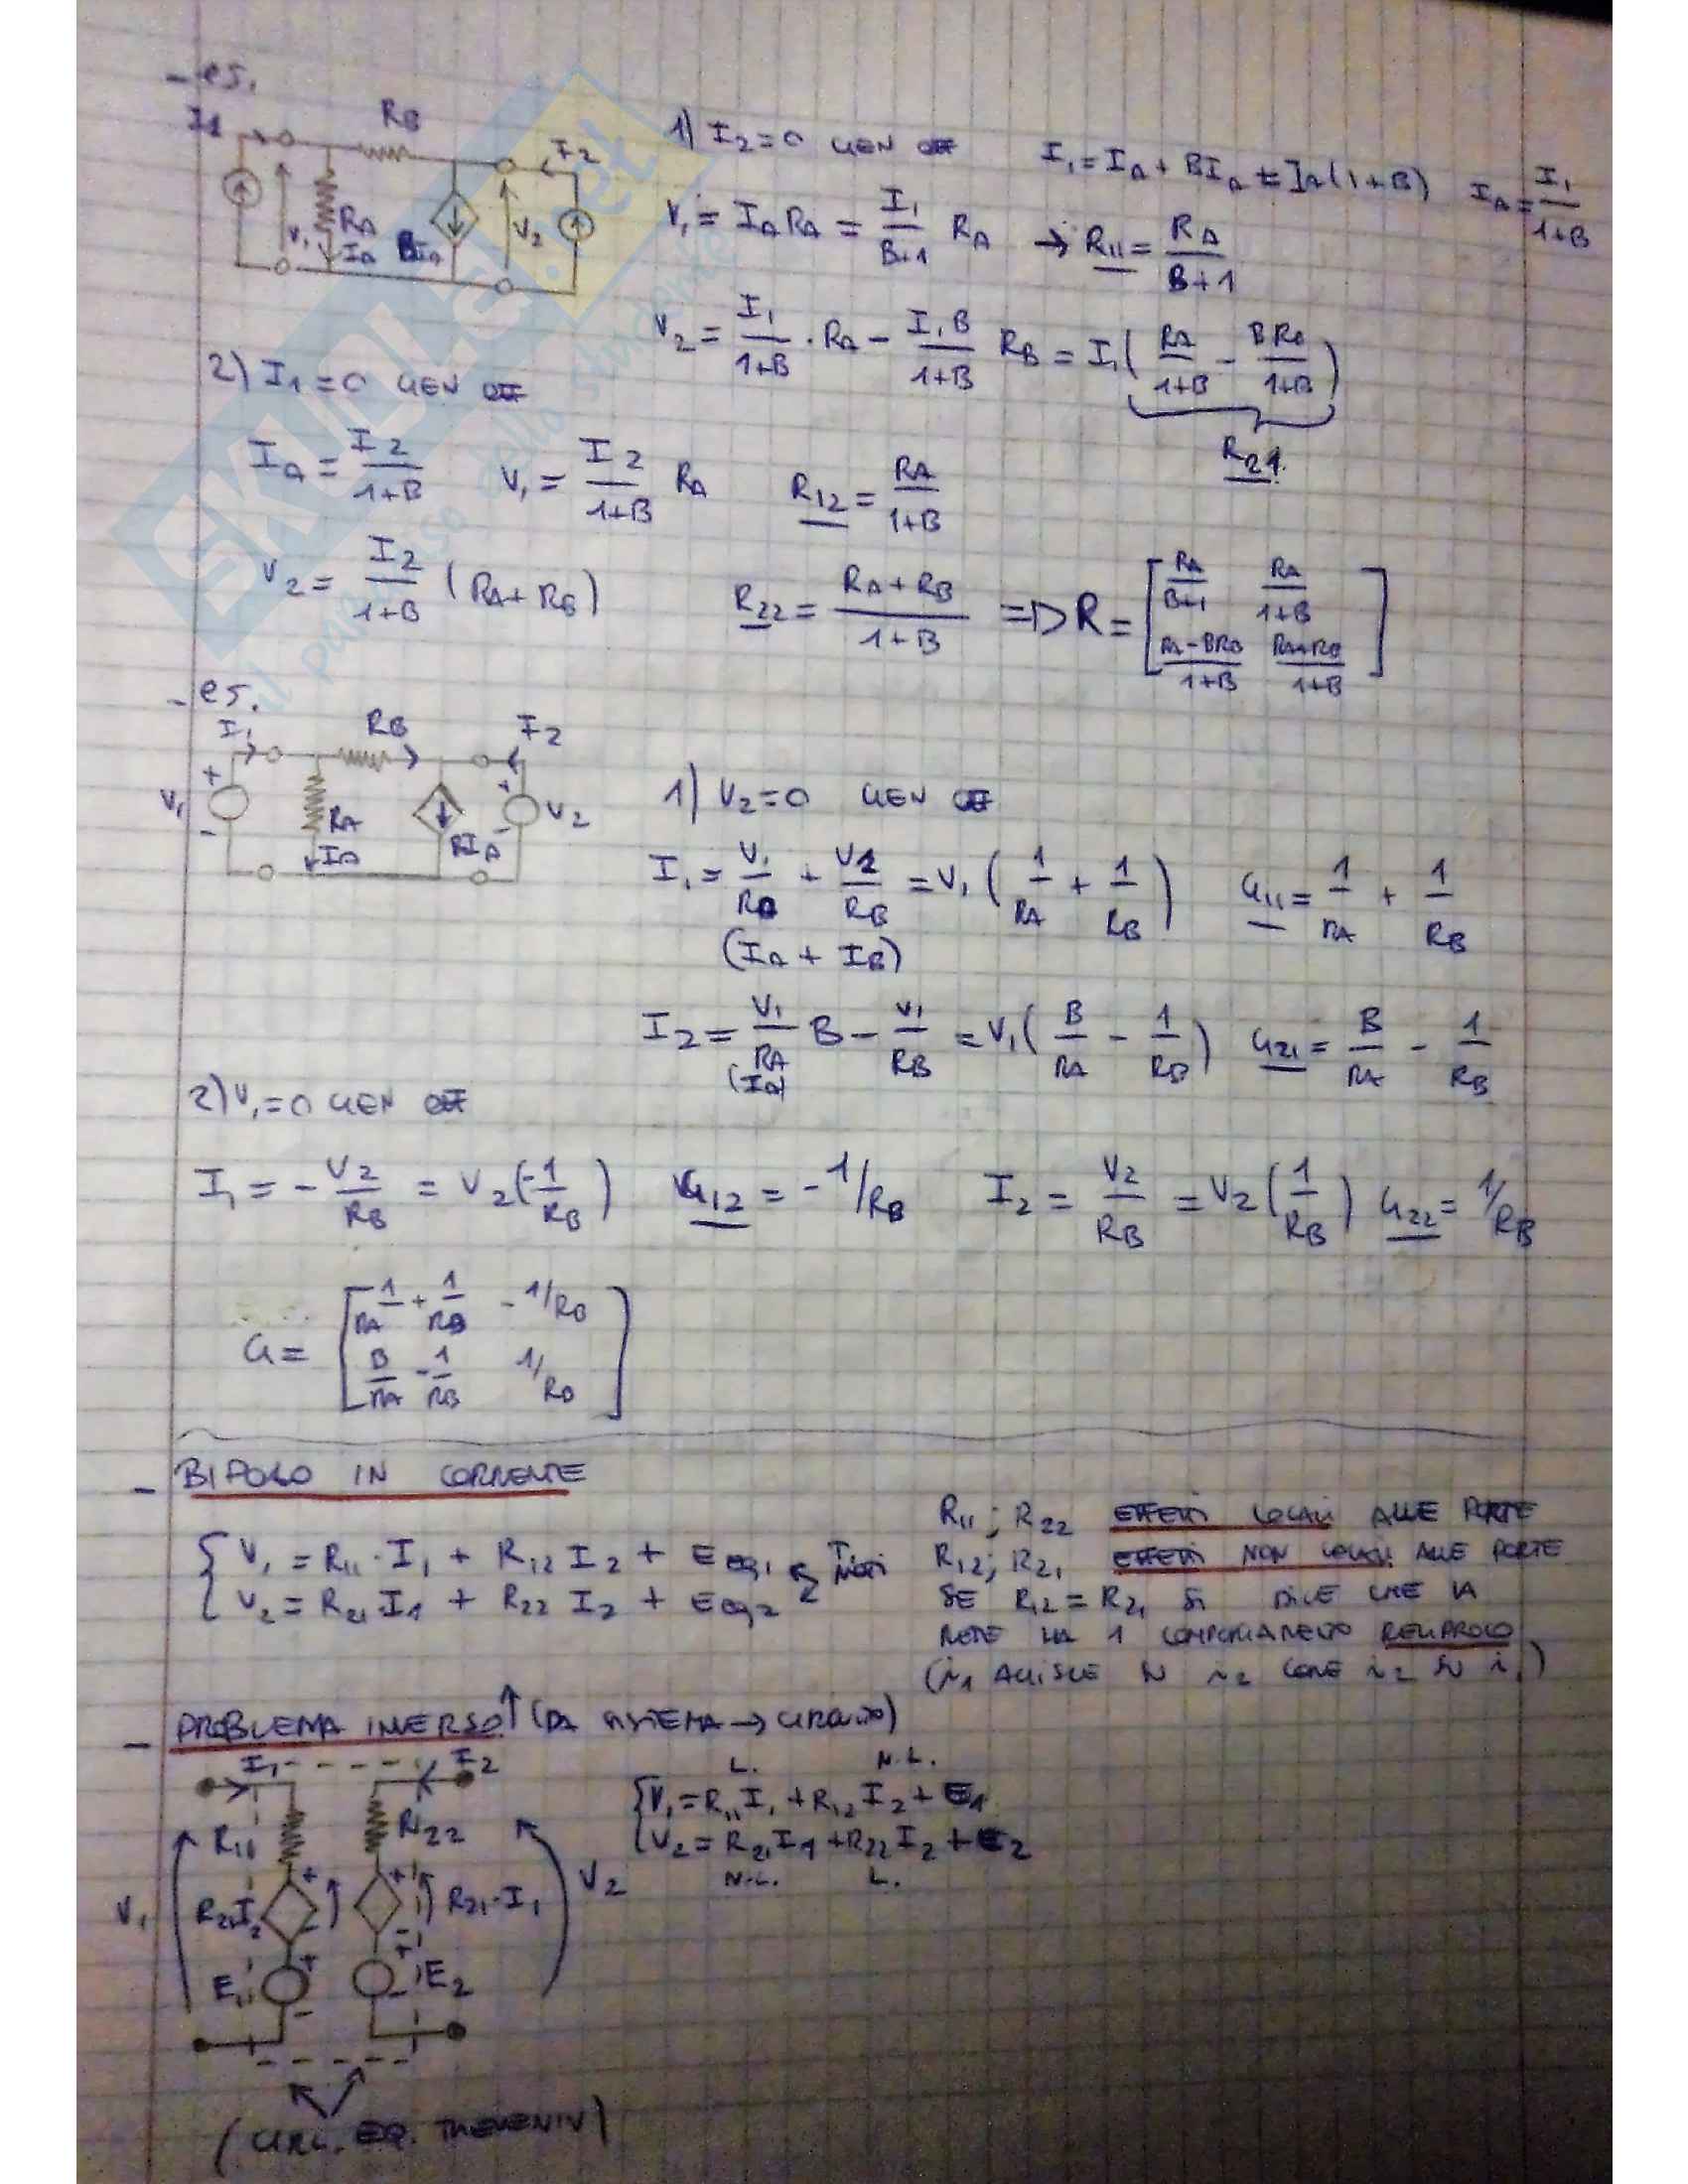 - es.
I1 RB I2
V1 RA IA BIA V2
1) I2=0 GEN OFF I1 = IA + BIA = IA(1+B) IA = I1/(1+B)
V1 = IA RA = I1/(B+1) RA → R11 = RA/(B+1)
V2 = I1/(1+B) · RA - I1B/(1+B) RB = I1(RA/(1+B) - BRB/(1+B))
R21
2) I1=0 GEN OFF
IA = I2/(1+B) V1 = I2/(1+B) RA R12 = RA/(1+B)
V2 = I2/(1+B) (RA+RB) R22 = (RA+RB)/(1+B) => R = [RA/(B+1) RA/(1+B)
(RA-BRB)/(1+B) (RA+RB)/(1+B)]
- es.
I1 RB I2
V1 + - RA IA BIA + - V2
1) V2=0 GEN OFF
I1 = V1/RA + V1/RB = V1(1/RA + 1/RB) G11 = 1/RA + 1/RB
(IA + IB)
I2 = V1/RA B - V1/RB = V1(B/RA - 1/RB) G21 = B/RA - 1/RB
(IA)
2) V1=0 GEN OFF
I1 = -V2/RB = V2(-1/RB) G12 = -1/RB I2 = V2/RB = V2(1/RB) G22 = 1/RB
G = [1/RA + 1/RB -1/RB
B/RA - 1/RB 1/RB]
- BIPOLO IN CORRENTE
V1 = R11·I1 + R12 I2 + Eeq1
V2 = R21·I1 + R22 I2 + Eeq2
R11; R22 EFFETTI LOCALI ALLE PORTE
R12; R21 EFFETTI NON LOCALI ALLE PORTE
SE R12=R21 SI DICE CHE LA
RETE HA 1 COMPORTAMENTO RECIPROCO
(i1 AGISCE SU i2 COME i2 SU i1)
- PROBLEMA INVERSO ↑ (DA SISTEMA → CIRCUITO)
I1 I2
L. N.L.
V1 = R11I1 + R12I2 + E1
V2 = R21I1 + R22I2 + E2
N.L. L.
R11 R22
V1 R21I2 + - + - R21·I1 V2
E1 + - + - E2
(CIRC. EQ. THEVENIN)
SKUOLA.net
il paradiso dello studente